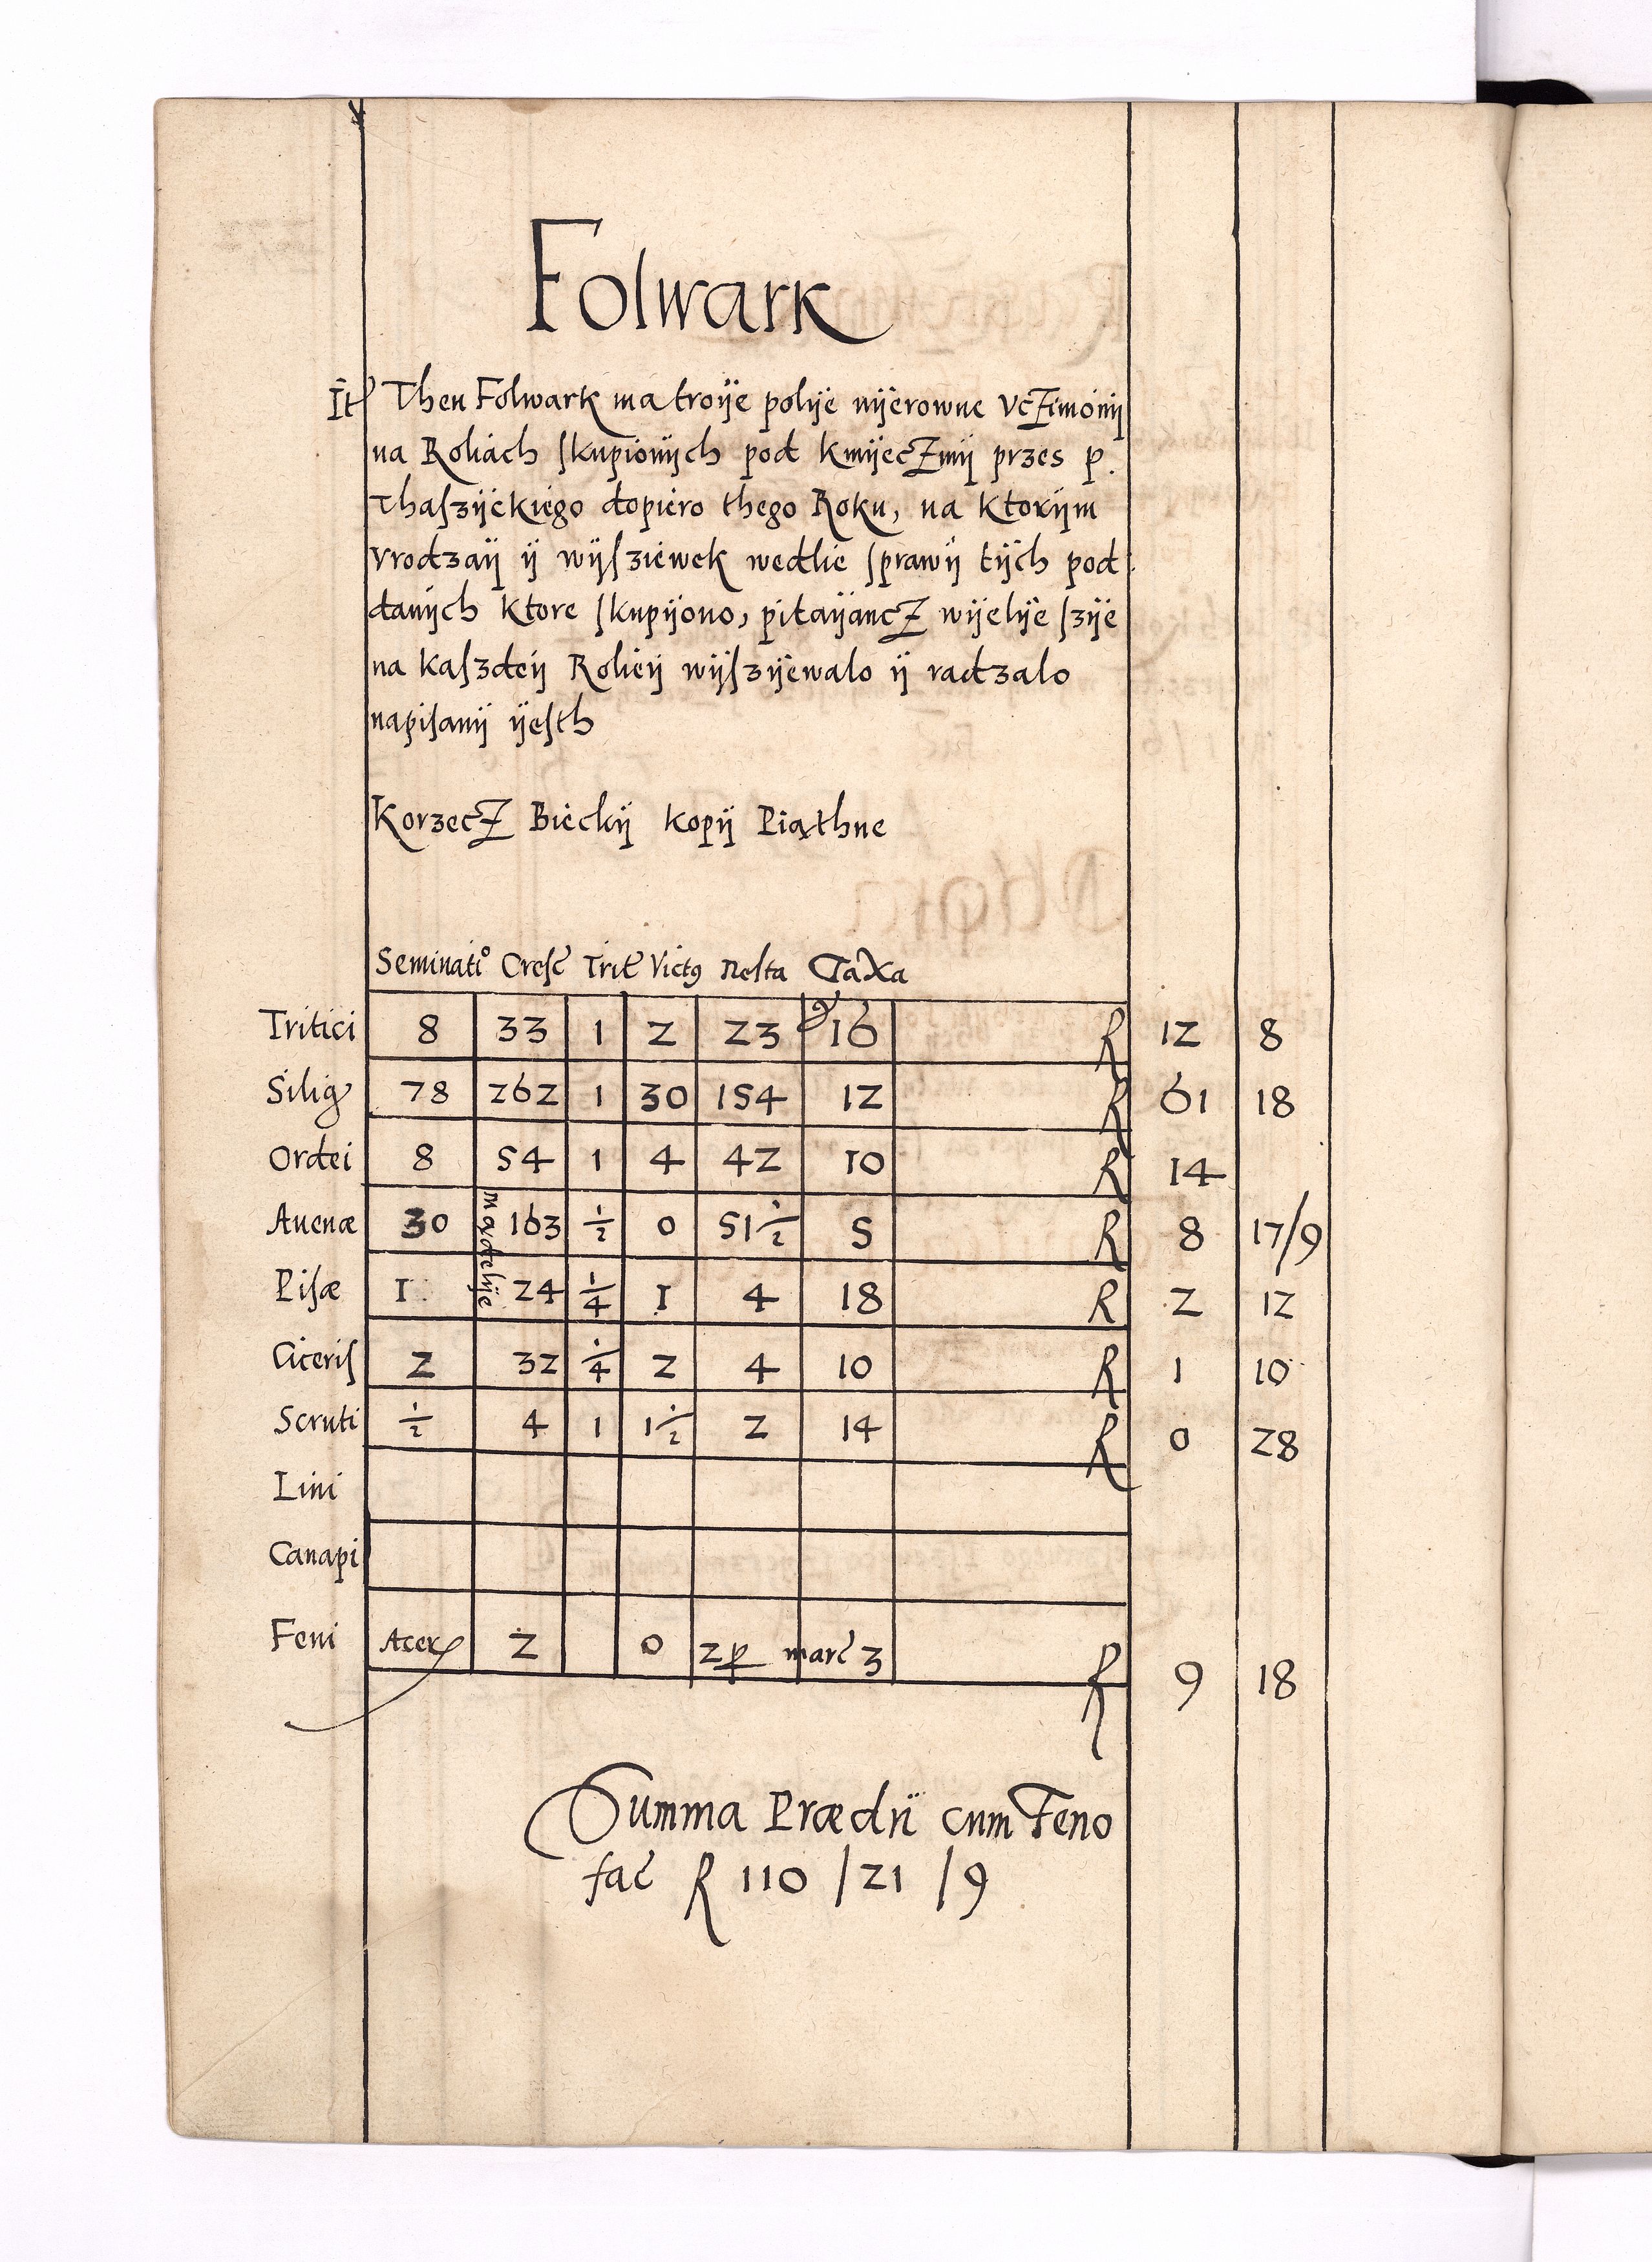 Folwark
It Then Folwark ma troije polije nijerowne vcZimionij
na Roliach skupionijch pod kmijecZmij przes p.
Thaszijckiego dopiero thego Roku, na ktorijm
vrodzaij ij wijsziewek wedlie sprawij tijch pod
danijch ktore skupijono, pitaijancZ wijelije szije
na kaszdeij Rolieij wijszijewalo ij radzalo
napisanij ijesth
KorzecZ Bieckij kopij Piąthne
Seminatio Cresc Trit Victus Resta Taxa
Tritici 8 33 1 2 23 g 16 R 12 8
Silig 78 262 1 30 154 12 R 61 18
Ordei 8 54 1 4 42 10 R 14
Auenæ 30 mądelije 163 1/2 0 51 1/2 5 R 8 17/9
Pisæ 1 24 1/4 1 4 18 R 2 12
Ciceris 2 32 1/4 2 4 10 R 1 10
Scruti 1/2 4 1 1 1/2 2 14 R 0 28
Lini
Canapi
Feni Acer 2 0 2 p marc 3 R 9 18
Summa Prædii cum Feno
fac R 110 / 21 / 9